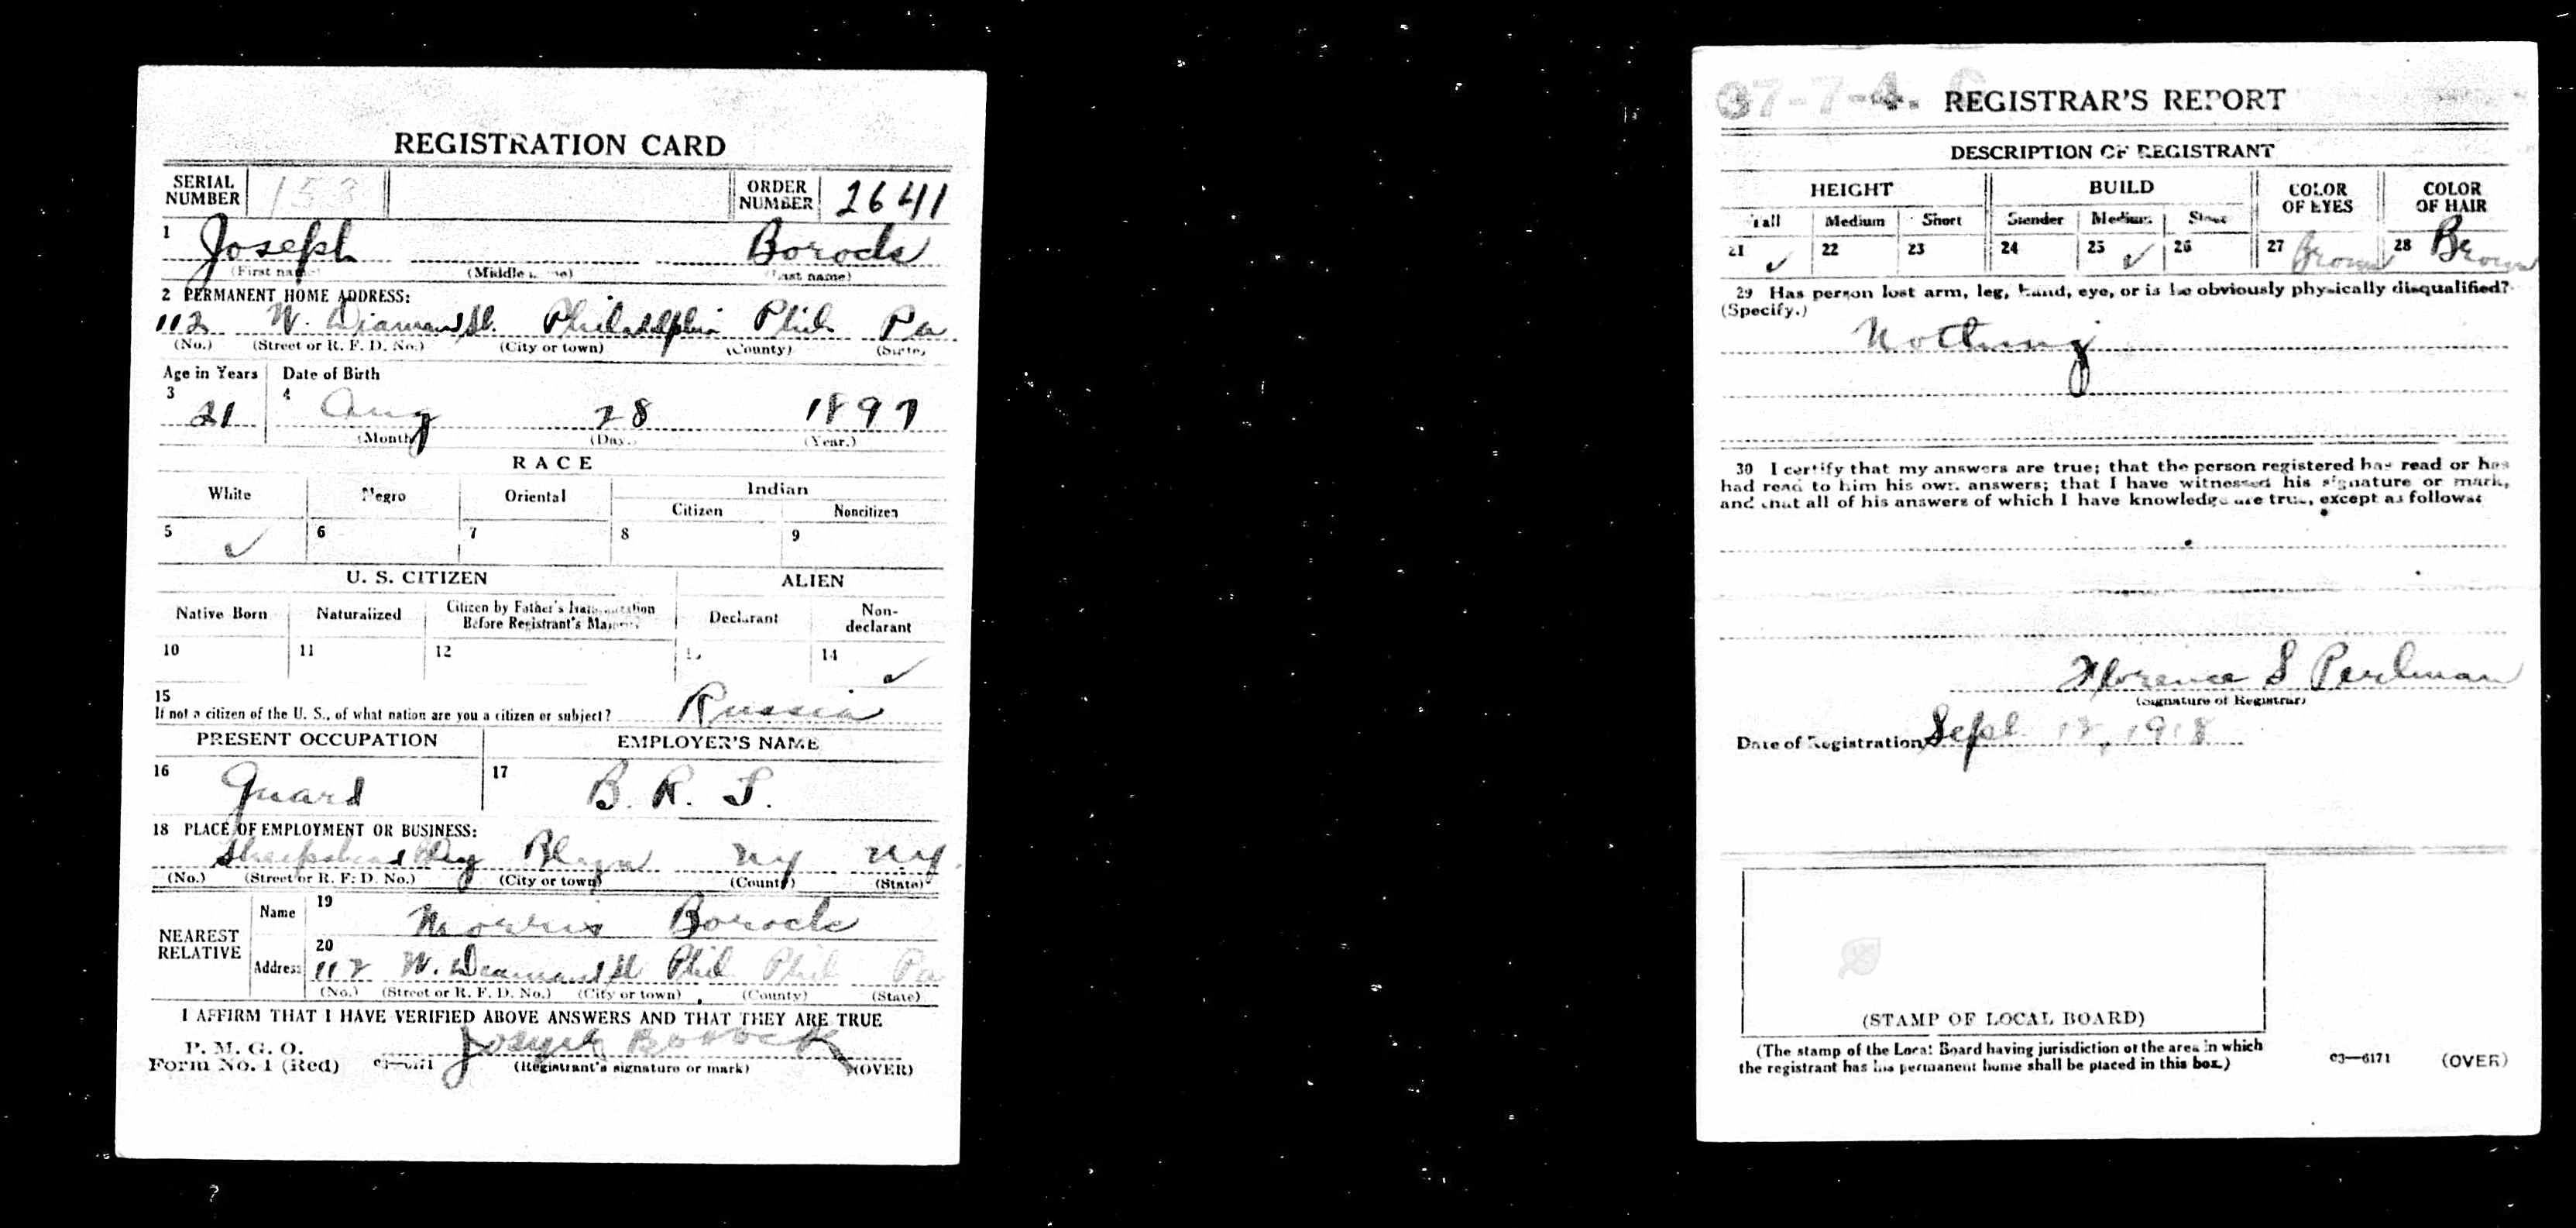 REGISTRATION CARD
SERIAL NUMBER 153 ORDER NUMBER 2641
1 Joseph Borock
(First name) (Middle name) (Last name)
2 PERMANENT HOME ADDRESS:
112 W. Diamond St. Philadelphia Phil. Pa
(No.) (Street or R. F. D. No.) (City or town) (County) (State)
Age in Years Date of Birth
3 21 4 Aug 28 1897
(Month) (Day.) (Year.)
RACE
White Negro Oriental Indian
Citizen Noncitizen
5 ✓ 6 7 8 9
U. S. CITIZEN ALIEN
Native Born Naturalized Citizen by Father's Naturalization Before Registrant's Majority Declarant Non-declarant
10 11 12 13 14 ✓
15
If not a citizen of the U. S., of what nation are you a citizen or subject? Russia
PRESENT OCCUPATION EMPLOYER'S NAME
16 Guard 17 B. R. T.
18 PLACE OF EMPLOYMENT OR BUSINESS:
Sheepshead Bay Bklyn NY NY.
(No.) (Street or R. F. D. No.) (City or town) (County) (State)
NEAREST RELATIVE
Name 19 Morris Borock
Address 20 112 W. Diamond St Phil Phil Pa
(No.) (Street or R. F. D. No.) (City or town) (County) (State)
I AFFIRM THAT I HAVE VERIFIED ABOVE ANSWERS AND THAT THEY ARE TRUE
P. M. G. O.
Form No. 1 (Red) 03—6171 Joseph Borock
(Registrant's signature or mark) (OVER)
37-7-4. C REGISTRAR'S REPORT
DESCRIPTION OF REGISTRANT
HEIGHT BUILD COLOR OF EYES COLOR OF HAIR
Tall Medium Short Slender Medium Stout
21 ✓ 22 23 24 25 ✓ 26 27 Brown 28 Brown
29 Has person lost arm, leg, hand, eye, or is he obviously physically disqualified?
(Specify.)
Nothing
30 I certify that my answers are true; that the person registered has read or has
had read to him his own answers; that I have witnessed his signature or mark,
and that all of his answers of which I have knowledge are true, except as follows:
Florence S Perlman
(Signature of Registrar)
Date of Registration Sept. 12, 1918
(STAMP OF LOCAL BOARD)
(The stamp of the Local Board having jurisdiction of the area in which
the registrant has his permanent home shall be placed in this box.)
03—6171 (OVER)